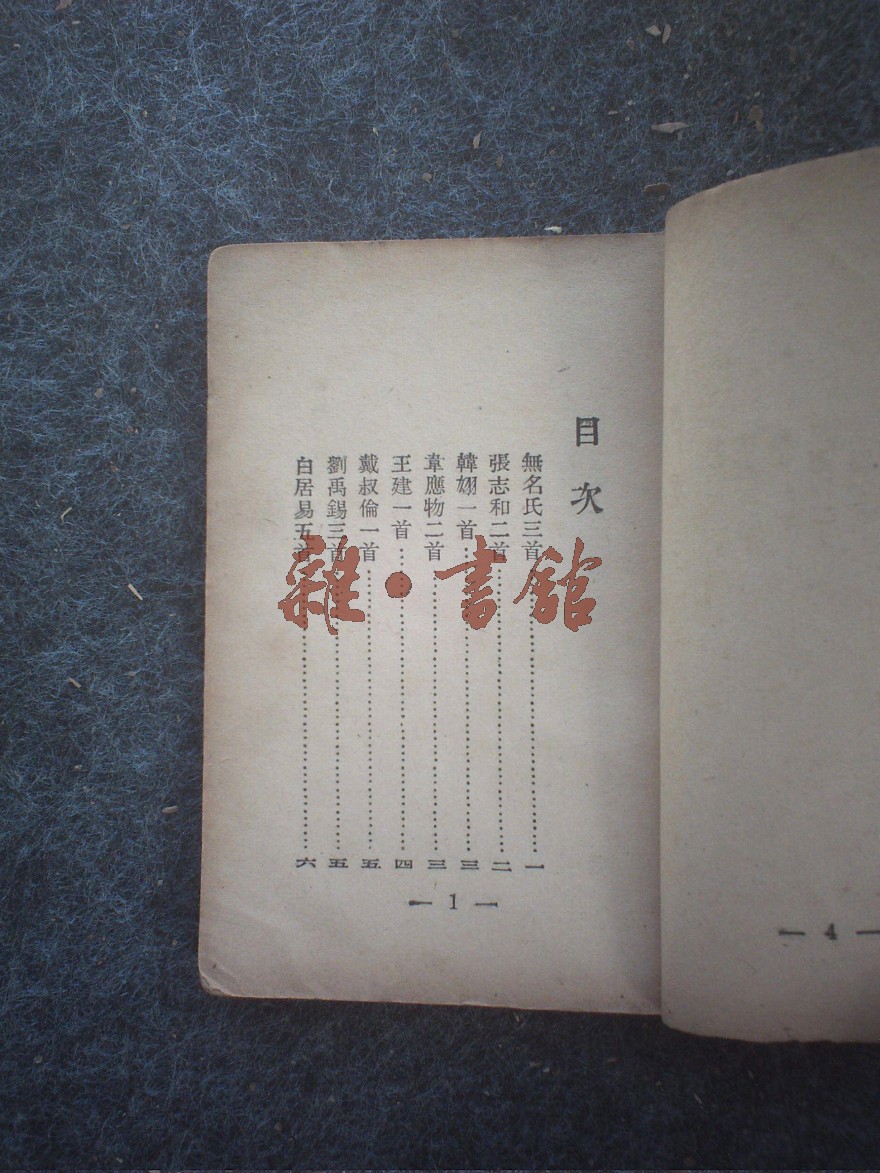 目次
無名氏三首……一
張志和二首……二
韓翃一首……三
韋應物二首……三
王建一首……四
戴叔倫一首……五
劉禹錫三首……五
白居易五首……六
— 1 —
— 4 —
雜·書館